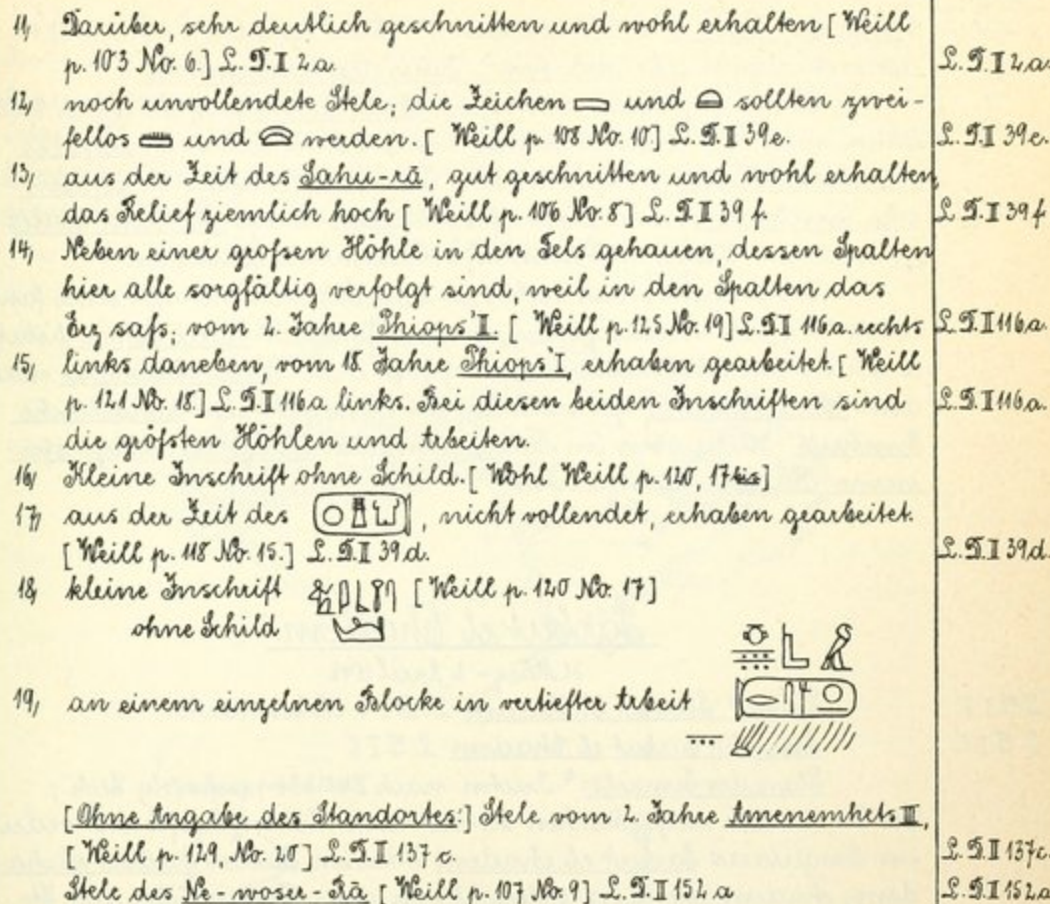 11, Darüber, sehr deutlich geschnitten und wohl erhalten [ Weill
p. 103 No. 6.] L. D. II 2a. L. D. II 2a.
12, noch unvollendete Stele; die Zeichen 𓈙 und 𓏏 sollten zwei-
fellos 𓏠 und werden. [ Weill p. 108 No. 10] L. D. II 39e. L. D. II 39e.
13, aus der Zeit des Sahu-rā, gut geschnitten und wohl erhalten,
das Relief ziemlich hoch [ Weill p. 106 No. 8] L. D. II 39 f. L. D. II 39 f
14, Neben einer großen Höhle in den Fels gehauen, dessen Spalten
hier alle sorgfältig verfolgt sind, weil in den Spalten das
Erz saß; vom 2. Jahre Phiops' II. [ Weill p. 125 No. 19] L. D. II 116a. rechts L. D. II 116a.
15, links daneben, vom 18. Jahre Phiops' I, erhaben gearbeitet. [ Weill
p. 121 No. 18] L. D. II 116a links. Bei diesen beiden Inschriften sind L. D. II 116a.
die größten Höhlen und Arbeiten.
16, Kleine Inschrift ohne Schild. [ Wohl Weill p. 120, 17 bis]
17, aus der Zeit des , nicht vollendet, erhaben gearbeitet.
[ Weill p. 118 No. 15.] L. D. II 39d. L. D. II 39d.
18, kleine Inschrift [ Weill p. 120 No. 17]
ohne Schild
19, an einem einzelnen Blocke in vertiefter Arbeit
[Ohne Angabe des Standortes:] Stele vom 2. Jahre Amenemhets III,
[ Weill p. 129, No. 20] L. D. II 137 c. L. D. II 137c.
Stele des Ne-woser-Rā [ Weill p. 107 No. 9] L. D. II 152 a L. D. II 152 a